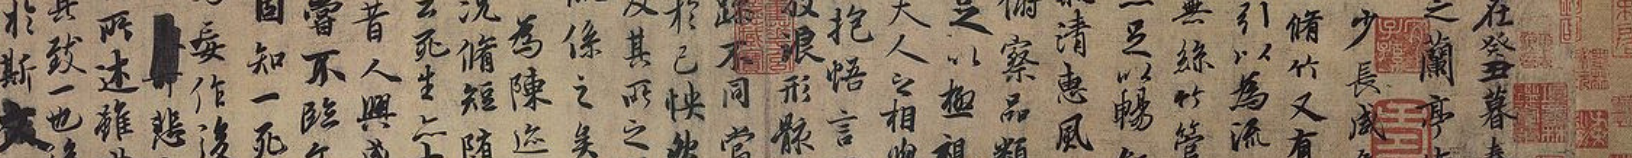 在癸丑暮春
之蘭亭
少長咸
脩竹又有
引以為流
無絲竹管
足以暢
清惠風
俯察品類
足以極視
夫人之相與
抱悟言
放浪形骸
躁不同當
於己怏然
及其所之
係之矣
為陳迹
況脩短隨
云死生亦大
昔人興感
嘗不臨文
固知一死
妄作後
悲
所述雖
其致一也後
於斯文